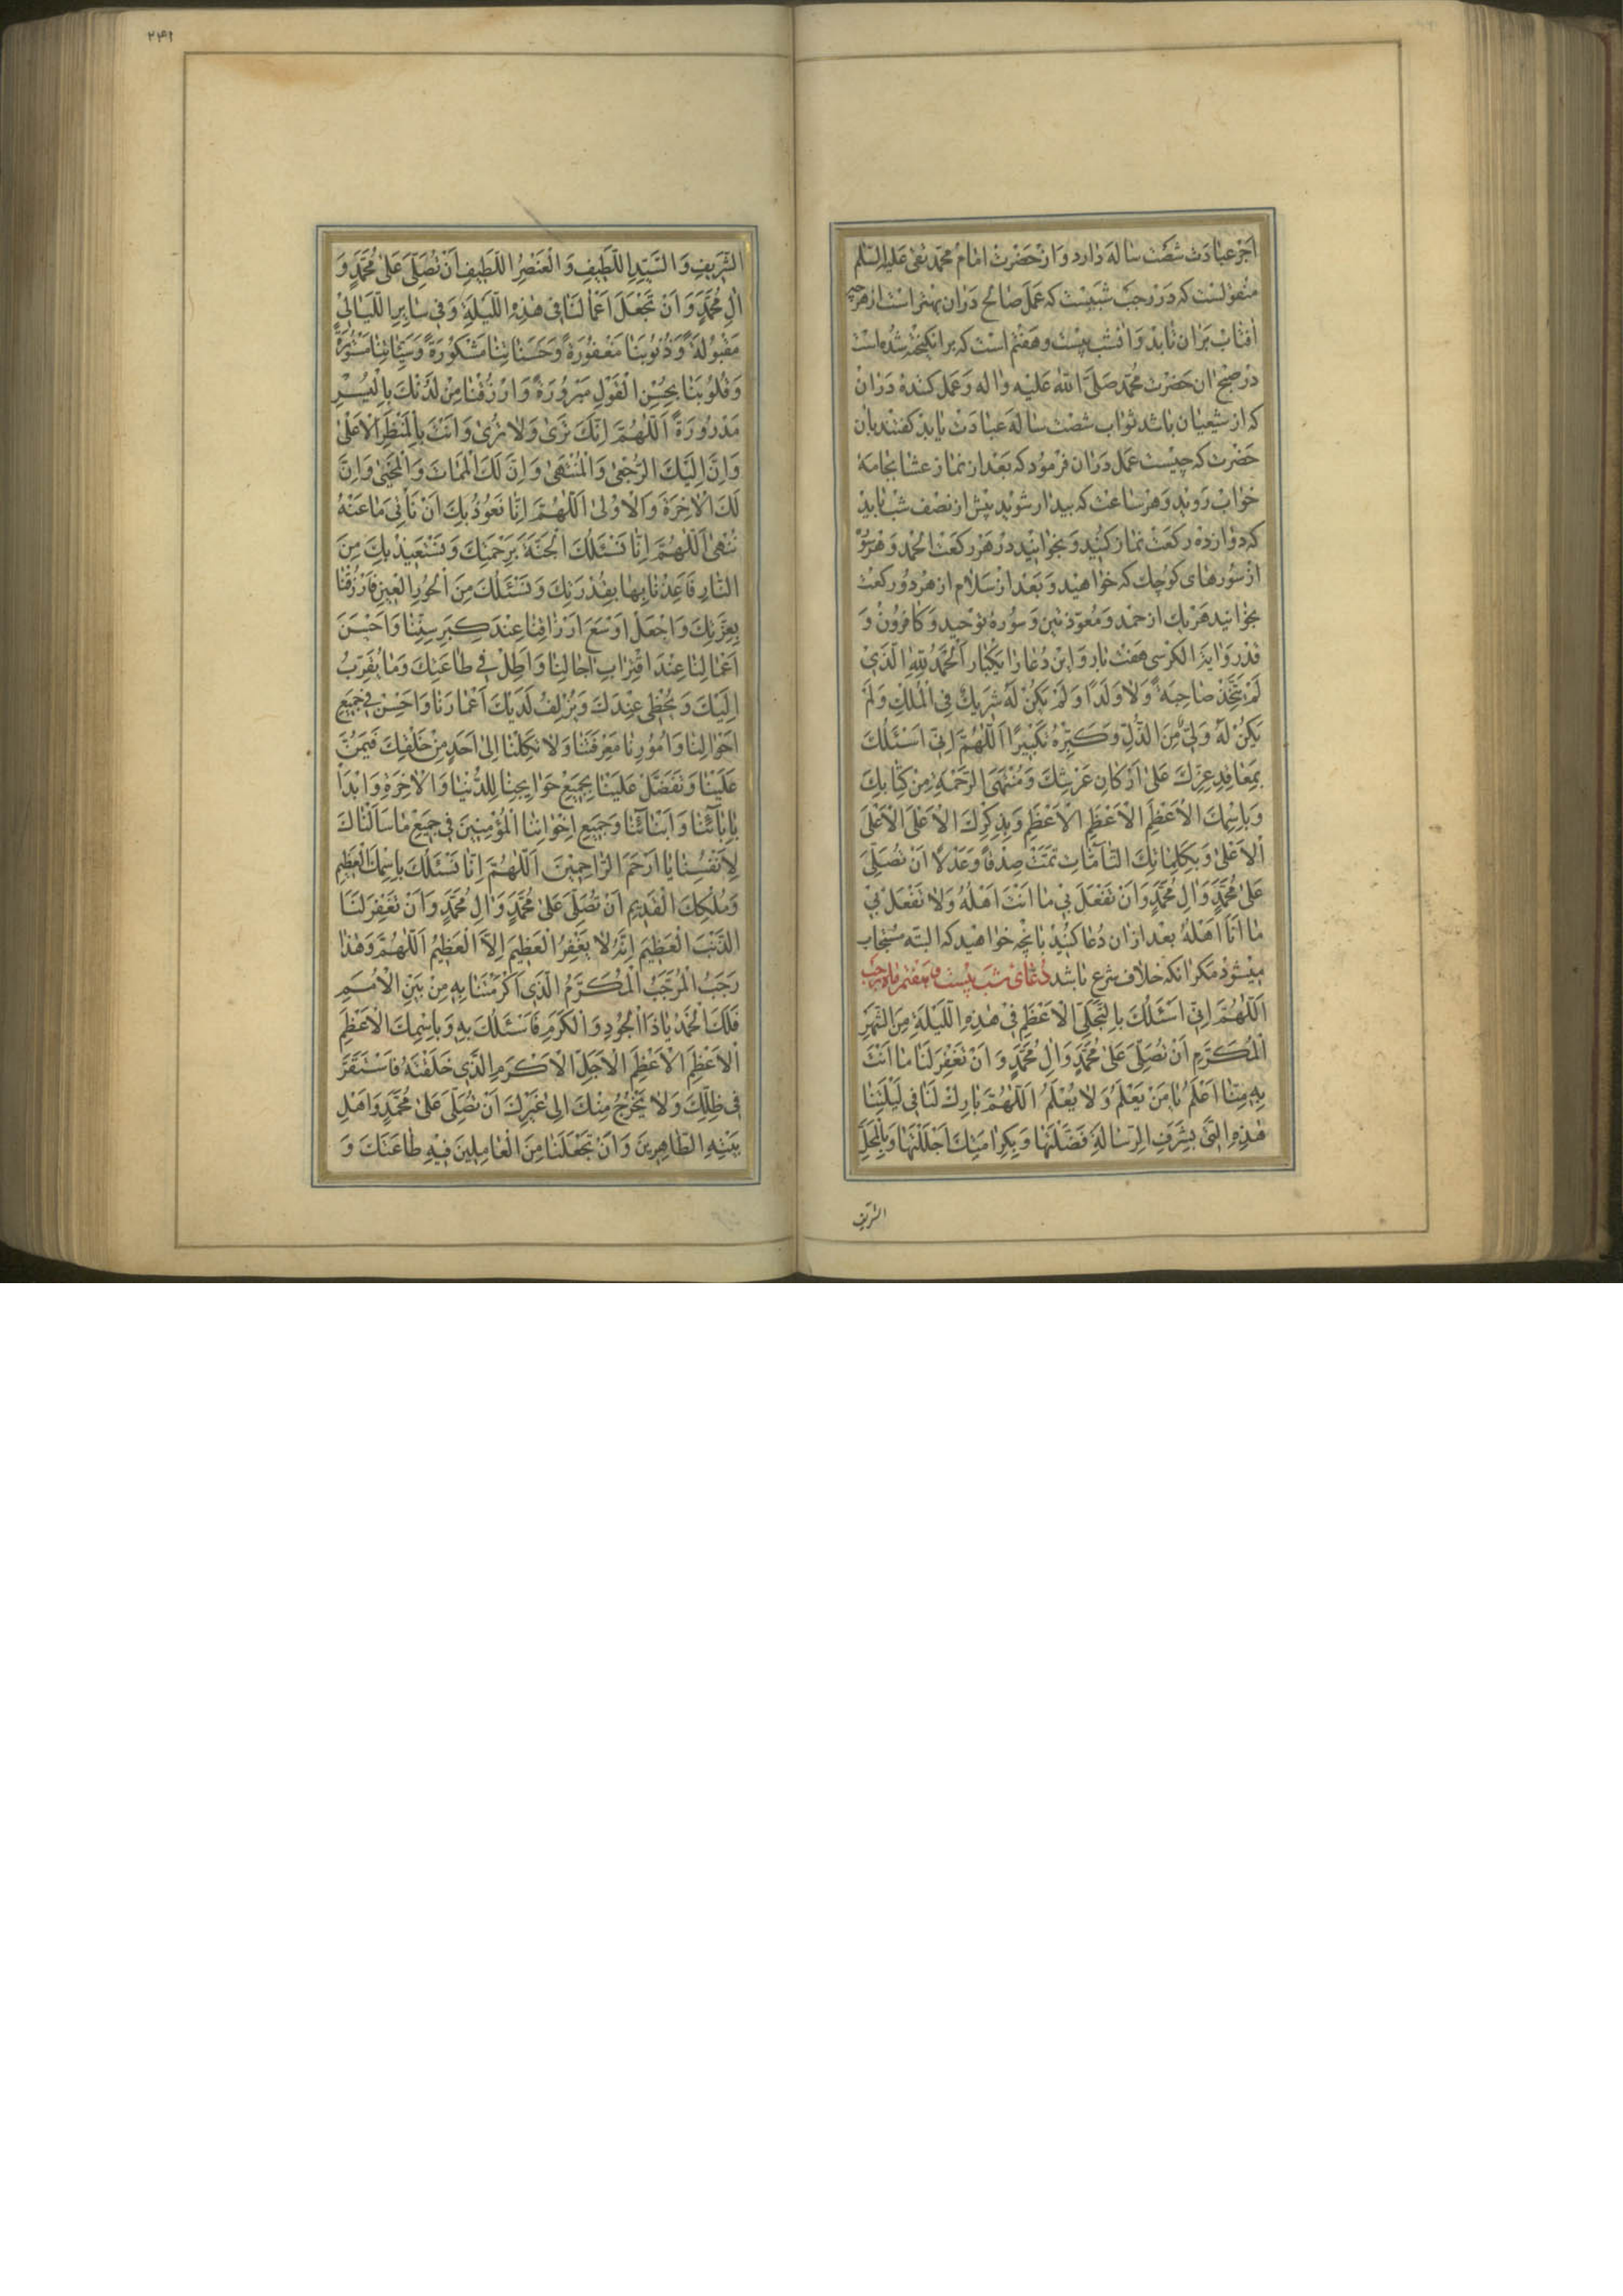 اجر عبادت شصت ساله دارد و از حضرت امام محمد تقی علیه السلم
منقولست که در رجب شبیست که عمل صالح در ان بهتر است از هر چه
افتاب بران تابد و ان شب بیست و هفتم است که برانکیخته شده است
در صبح ان حضرت محمد صلی الله علیه واله و عمل کننده در ان
که از شیعیان باشد ثواب شصت ساله عبادت یابد کفتند بان
حضرت که چیست عمل در ان فرمود که بعد از نماز عشا بجامه
خواب روید و هر ساعت که بیدار شوید پیش از نصف شب باید
که دوازده رکعت نماز کنید و بخوانید در هر رکعت الحمد و هر سوره
از سورهای کوچک که خواهید و بعد از سلام از هر دو رکعت
بخوانید هر یک از حمد و معوذتین و سوره توحید و کافرون و
قدر و ایة الکرسی هفت بار و این دعا را یکبار اَلْحَمْدُ لِلّٰهِ الَّذي
لَمْ يَتَّخِذْ صاحِبَةً وَلا وَلَدًا وَلَمْ يَكُنْ لَهُ شَريكٌ فِي الْمُلْكِ وَلَمْ
يَكُنْ لَهُ وَلِيٌّ مِنَ الذُّلِّ وَكَبِّرْهُ تَكْبيرًا اَللّٰهُمَّ اِنّي اَسْئَلُكَ
بِمَعاقِدِ عِزِّكَ عَلىٰ اَرْكانِ عَرْشِكَ وَمُنْتَهَى الرَّحْمَةِ مِنْ كِتابِكَ
وَبِاسْمِكَ الْاَعْظَمِ الْاَعْظَمِ الْاَعْظَمِ وَبِذِكْرِكَ الْاَعْلَى الْاَعْلَى
الْاَعْلىٰ وَبِكَلِماتِكَ التّامّاتِ تَمَّتْ صِدْقًا وَعَدْلًا اَنْ تُصَلِّيَ
عَلىٰ مُحَمَّدٍ وَالِ مُحَمَّدٍ وَاَنْ تَفْعَلَ بي ما اَنْتَ اَهْلُهُ وَلا تَفْعَلْ بي
ما اَنَا اَهْلُهُ بعد از ان دعا کنید بانچه خواهید که البته مستجاب
میشود مکر انکه خلاف شرع باشد دعای شب بیست و هفتم ماه رجب
اَللّٰهُمَّ اِنّي اَسْئَلُكَ بِالتَّجَلّي الْاَعْظَمِ في هٰذِهِ اللَّيْلَةِ مِنَ الشَّهْرِ
الْمُكَرَّمِ اَنْ تُصَلِّيَ عَلىٰ مُحَمَّدٍ وَالِ مُحَمَّدٍ وَاَنْ تَغْفِرَ لَنا ما اَنْتَ
بِهِ مِنّا اَعْلَمُ يا مَنْ يَعْلَمُ وَلا يُعْلَمُ اَللّٰهُمَّ بارِكْ لَنا في لَيْلَتِنا
هٰذِهِ الَّتي بِشَرَفِ الرِّسالَةِ فَضَّلْتَها وَبِكَرامَتِكَ اَجْلَلْتَها وَبِالْمَحَلِّ
الشریف
۲۴۱
الشَّريفِ وَالسَّيِّدِ اللَّطيفِ وَالْعُنْصُرِ اللَّطيفِ اَنْ تُصَلِّيَ عَلىٰ مُحَمَّدٍ وَ
الِ مُحَمَّدٍ وَاَنْ تَجْعَلَ اَعْمالَنا في هٰذِهِ اللَّيْلَةِ وَفي سايِرِ اللَّيالي
مَقْبُولَةً وَذُنُوبَنا مَغْفُورَةً وَحَسَناتِنا مَشْكُورَةً وَسَيِّئاتِنا مَسْتُورَةً
وَقُلُوبَنا بِحُسْنِ الْقَوْلِ مَسْرُورَةً وَارْزُقْنا مِنْ لَدُنْكَ بِالْيُسْرِ
مَدْرُورَةً اَللّٰهُمَّ اِنَّكَ تَرىٰ وَلا تُرىٰ وَاَنْتَ بِالْمَنْظَرِ الْاَعْلىٰ
وَاِنَّ اِلَيْكَ الرُّجْعىٰ وَالْمُنْتَهىٰ وَاِنَّ لَكَ الْمَماتَ وَالْمَحْيىٰ وَاِنَّ
لَكَ الْاٰخِرَةَ وَالْاُولىٰ اَللّٰهُمَّ اِنّا نَعُوذُ بِكَ اَنْ نَأْتِيَ ما عَنْهُ
تَنْهىٰ اَللّٰهُمَّ اِنّا نَسْئَلُكَ الْجَنَّةَ بِرَحْمَتِكَ وَنَسْتَعيذُ بِكَ مِنَ
النّارِ فَاَعِذْنا مِنْها بِقُدْرَتِكَ وَنَسْئَلُكَ مِنَ الْحُورِ الْعينِ فَارْزُقْنا
بِعِزَّتِكَ وَاجْعَلْ اَوْسَعَ اَرْزاقِنا عِنْدَ كِبَرِ سِنِّنا وَاَحْسَنَ
اَعْمالِنا عِنْدَ اقْتِرابِ اجالِنا وَاَطِلْ في طاعَتِكَ وَما يُقَرِّبُ
اِلَيْكَ وَيُحْظي عِنْدَكَ وَيُزْلِفُ لَدَيْكَ اَعْمارَنا وَاَحْسِنْ في جَميعِ
اَحْوالِنا وَاُمُورِنا مَعْرِفَتَنا وَلا تَكِلْنا اِلىٰ اَحَدٍ مِنْ خَلْقِكَ فَيَمُنَّ
عَلَيْنا وَتَفَضَّلْ عَلَيْنا بِجَميعِ حَوايِجِنا لِلدُّنْيا وَالْاٰخِرَةِ وَابْدَأْ
بِاٰبائِنا وَاَبْنائِنا وَجَميعِ اِخْوانِنَا الْمُؤْمِنينَ في جَميعِ ما سَاَلْناكَ
لِاَنْفُسِنا يا اَرْحَمَ الرّاحِمينَ اَللّٰهُمَّ اِنّا نَسْئَلُكَ بِاسْمِكَ الْعَظيمِ
وَمُلْكِكَ الْقَديمِ اَنْ تُصَلِّيَ عَلىٰ مُحَمَّدٍ وَالِ مُحَمَّدٍ وَاَنْ تَغْفِرَ لَنَا
الذَّنْبَ الْعَظيمَ اِنَّهُ لا يَغْفِرُ الْعَظيمَ اِلَّا الْعَظيمُ اَللّٰهُمَّ وَهٰذا
رَجَبُ الْمُرَجَّبُ الْمُكَرَّمُ الَّذي اَكْرَمْتَنا بِهِ مِنْ بَيْنِ الْاُمَمِ
فَلَكَ الْحَمْدُ يا ذَا الْجُودِ وَالْكَرَمِ فَاَسْئَلُكَ بِهِ وَبِاسْمِكَ الْاَعْظَمِ
الْاَعْظَمِ الْاَعْظَمِ الْاَجَلِّ الْاَكْرَمِ الَّذي خَلَقْتَهُ فَاسْتَقَرَّ
في ظِلِّكَ وَلا يَخْرُجُ مِنْكَ اِلىٰ غَيْرِكَ اَنْ تُصَلِّيَ عَلىٰ مُحَمَّدٍ وَاَهْلِ
بَيْتِهِ الطّاهِرينَ وَاَنْ تَجْعَلَنا مِنَ الْعامِلينَ فيهِ طاعَتَكَ وَ